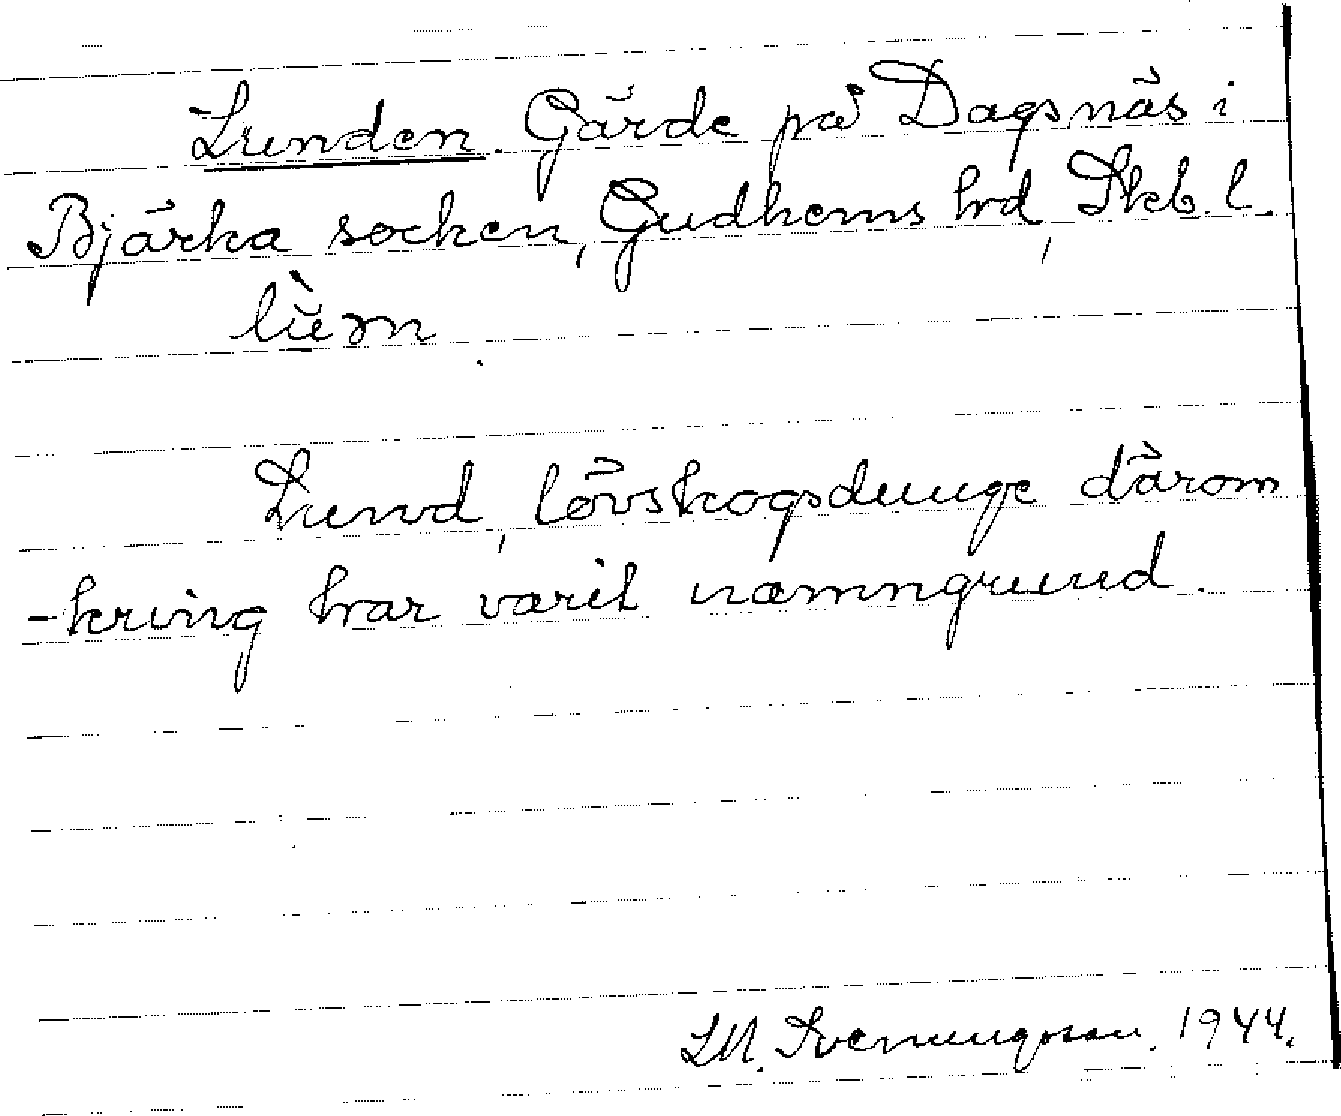 Lunden. Gärde på Dagsnäs i
Bjärka socken, Gudhems hrd, Skb. l.
lù̈m
Lund, lövskogsdunge därom
-kring har varit namngrund.
LM. Svenungsson. 1944.